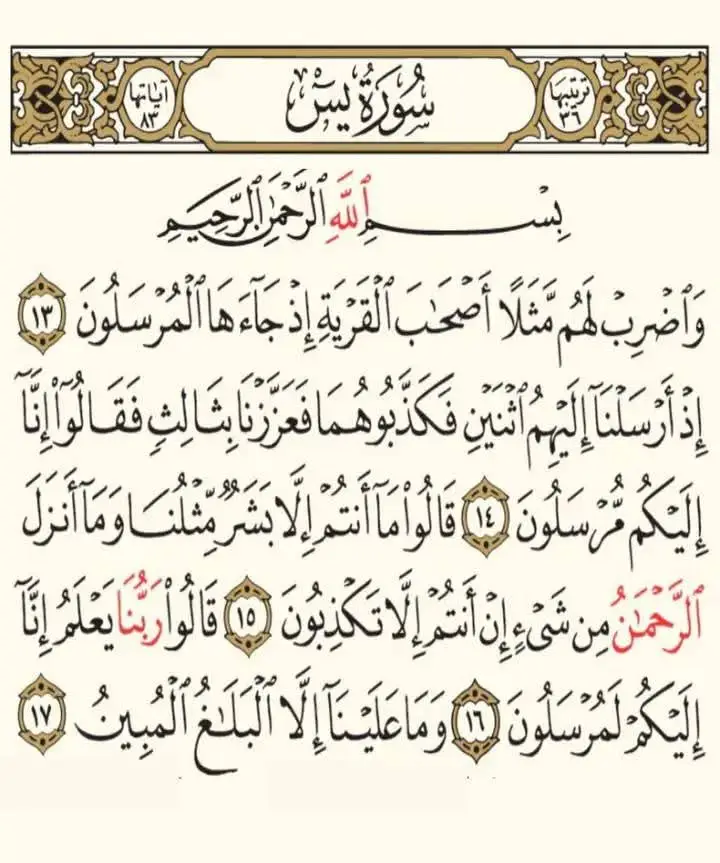 ترتيبها ٣٦
سُورَةُ يسٓ
آياتها ٨٣
بِسْمِ ٱللَّهِ ٱلرَّحْمَٰنِ ٱلرَّحِيمِ
وَٱضْرِبْ لَهُم مَّثَلًا أَصْحَٰبَ ٱلْقَرْيَةِ إِذْ جَآءَهَا ٱلْمُرْسَلُونَ ١٣
إِذْ أَرْسَلْنَآ إِلَيْهِمُ ٱثْنَيْنِ فَكَذَّبُوهُمَا فَعَزَّزْنَا بِثَالِثٍ فَقَالُوٓا۟ إِنَّآ
إِلَيْكُم مُّرْسَلُونَ ١٤ قَالُوا۟ مَآ أَنتُمْ إِلَّا بَشَرٌ مِّثْلُنَا وَمَآ أَنزَلَ
ٱلرَّحْمَٰنُ مِن شَىْءٍ إِنْ أَنتُمْ إِلَّا تَكْذِبُونَ ١٥ قَالُوا۟ رَبُّنَا يَعْلَمُ إِنَّآ
إِلَيْكُمْ لَمُرْسَلُونَ ١٦ وَمَا عَلَيْنَآ إِلَّا ٱلْبَلَٰغُ ٱلْمُبِينُ ١٧